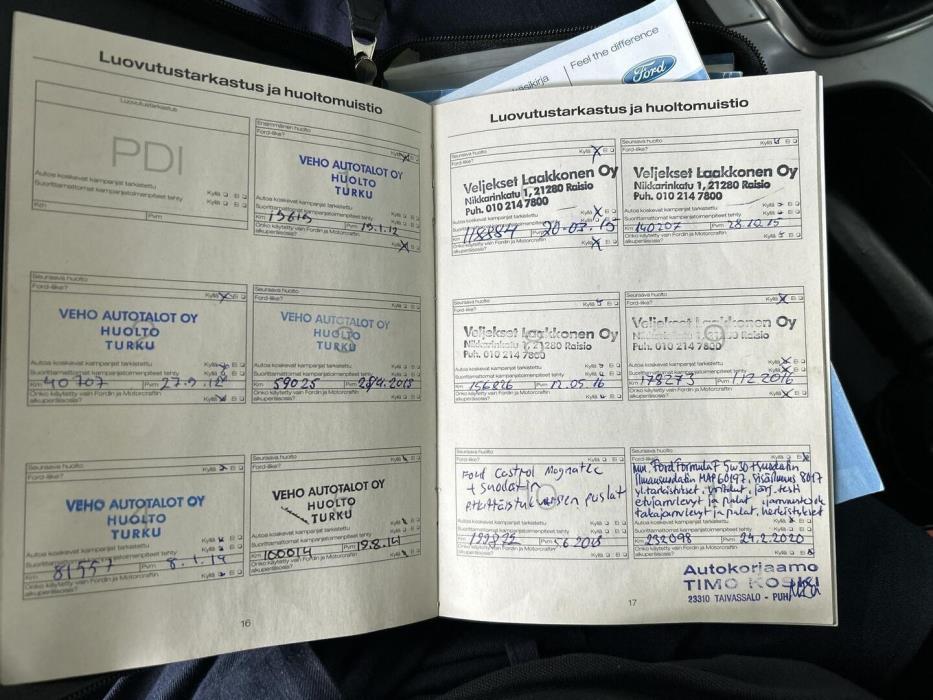 Luovutustarkastus ja huoltomuistio
Luovutustarkastus
PDI
Autoa koskevat kampanjat tarkastettu
Suorittamattomat kampanjatoimenpiteet tehty
Kyllä Ei
Kyllä Ei
Km
Pvm
Ensimmäinen huolto
Ford-liike?
Kyllä Ei
VEHO AUTOTALOT OY
HUOLTO
TURKU
Autoa koskevat kampanjat tarkastettu
Suorittamattomat kampanjatoimenpiteet tehty
Km 15615 Pvm 19.1.12
Onko käytetty vain Fordin ja Motorcraftin
alkuperäisosia?
Seuraava huolto
Ford-liike?
Kyllä Ei
VEHO AUTOTALOT OY
HUOLTO
TURKU
Autoa koskevat kampanjat tarkastettu
Suorittamattomat kampanjatoimenpiteet tehty
Km 40707 Pvm 27.9.12
Onko käytetty vain Fordin ja Motorcraftin
alkuperäisosia?
Seuraava huolto
Ford-liike?
Kyllä Ei
VEHO AUTOTALOT OY
HUOLTO
TURKU
Autoa koskevat kampanjat tarkastettu
Suorittamattomat kampanjatoimenpiteet tehty
Km 59025 Pvm
Onko käytetty vain Fordin ja Motorcraftin
alkuperäisosia?
Seuraava huolto
Ford-liike?
Kyllä Ei
VEHO AUTOTALOT OY
HUOLTO
TURKU
Autoa koskevat kampanjat tarkastettu
Suorittamattomat kampanjatoimenpiteet tehty
Km 81557 Pvm 8.1.14
Onko käytetty vain Fordin ja Motorcraftin
alkuperäisosia?
Seuraava huolto
Ford-liike?
Kyllä Ei
VEHO AUTOTALOT OY
HUOLTO
TURKU
Autoa koskevat kampanjat tarkastettu
Suorittamattomat kampanjatoimenpiteet tehty
Km 100014 Pvm 19.8.14
Onko käytetty vain Fordin ja Motorcraftin
alkuperäisosia?
16
Feel the difference
Ford
Luovutustarkastus ja huoltomuistio
Seuraava huolto
Ford-liike?
Kyllä Ei
Veljekset Laakkonen Oy
Nikkarinkatu 1, 21280 Raisio
Puh. 010 214 7800
Autoa koskevat kampanjat tarkastettu
Suorittamattomat kampanjatoimenpiteet tehty
Km 118884 Pvm 20.03.15
Onko käytetty vain Fordin ja Motorcraftin
alkuperäisosia?
Seuraava huolto
Ford-liike?
Kyllä Ei
Veljekset Laakkonen Oy
Nikkarinkatu 1, 21280 Raisio
Puh. 010 214 7800
Autoa koskevat kampanjat tarkastettu
Suorittamattomat kampanjatoimenpiteet tehty
Km 140207 Pvm 28.10.15
Onko käytetty vain Fordin ja Motorcraftin
alkuperäisosia?
Seuraava huolto
Ford-liike?
Kyllä Ei
Veljekset Laakkonen Oy
Nikkarinkatu 1, 21280 Raisio
Puh. 010 214 7800
Autoa koskevat kampanjat tarkastettu
Suorittamattomat kampanjatoimenpiteet tehty
Km 156826 Pvm 12.05.16
Onko käytetty vain Fordin ja Motorcraftin
alkuperäisosia?
Seuraava huolto
Ford-liike?
Kyllä Ei
Veljekset Laakkonen Oy
Puh. 010 214 7800
Autoa koskevat kampanjat tarkastettu
Suorittamattomat kampanjatoimenpiteet tehty
Km 178273 Pvm 1.12.2016
Onko käytetty vain Fordin ja Motorcraftin
alkuperäisosia?
Seuraava huolto
Ford Castrol Magnatec
+ Suodatin
puslat
Km Pvm 5.6.2018
Onko käytetty vain Fordin ja Motorcraftin
alkuperäisosia?
Ford Formula F 5w30 + suodatin
ilmansuodatin
etujarrulevyt ja palat
takajarrulevyt ja palat
Km 232098 Pvm 24.2.2020
Onko käytetty vain Fordin ja Motorcraftin
alkuperäisosia?
Autokorjaamo
TIMO
23310 TAIVASSALO - PUH
17